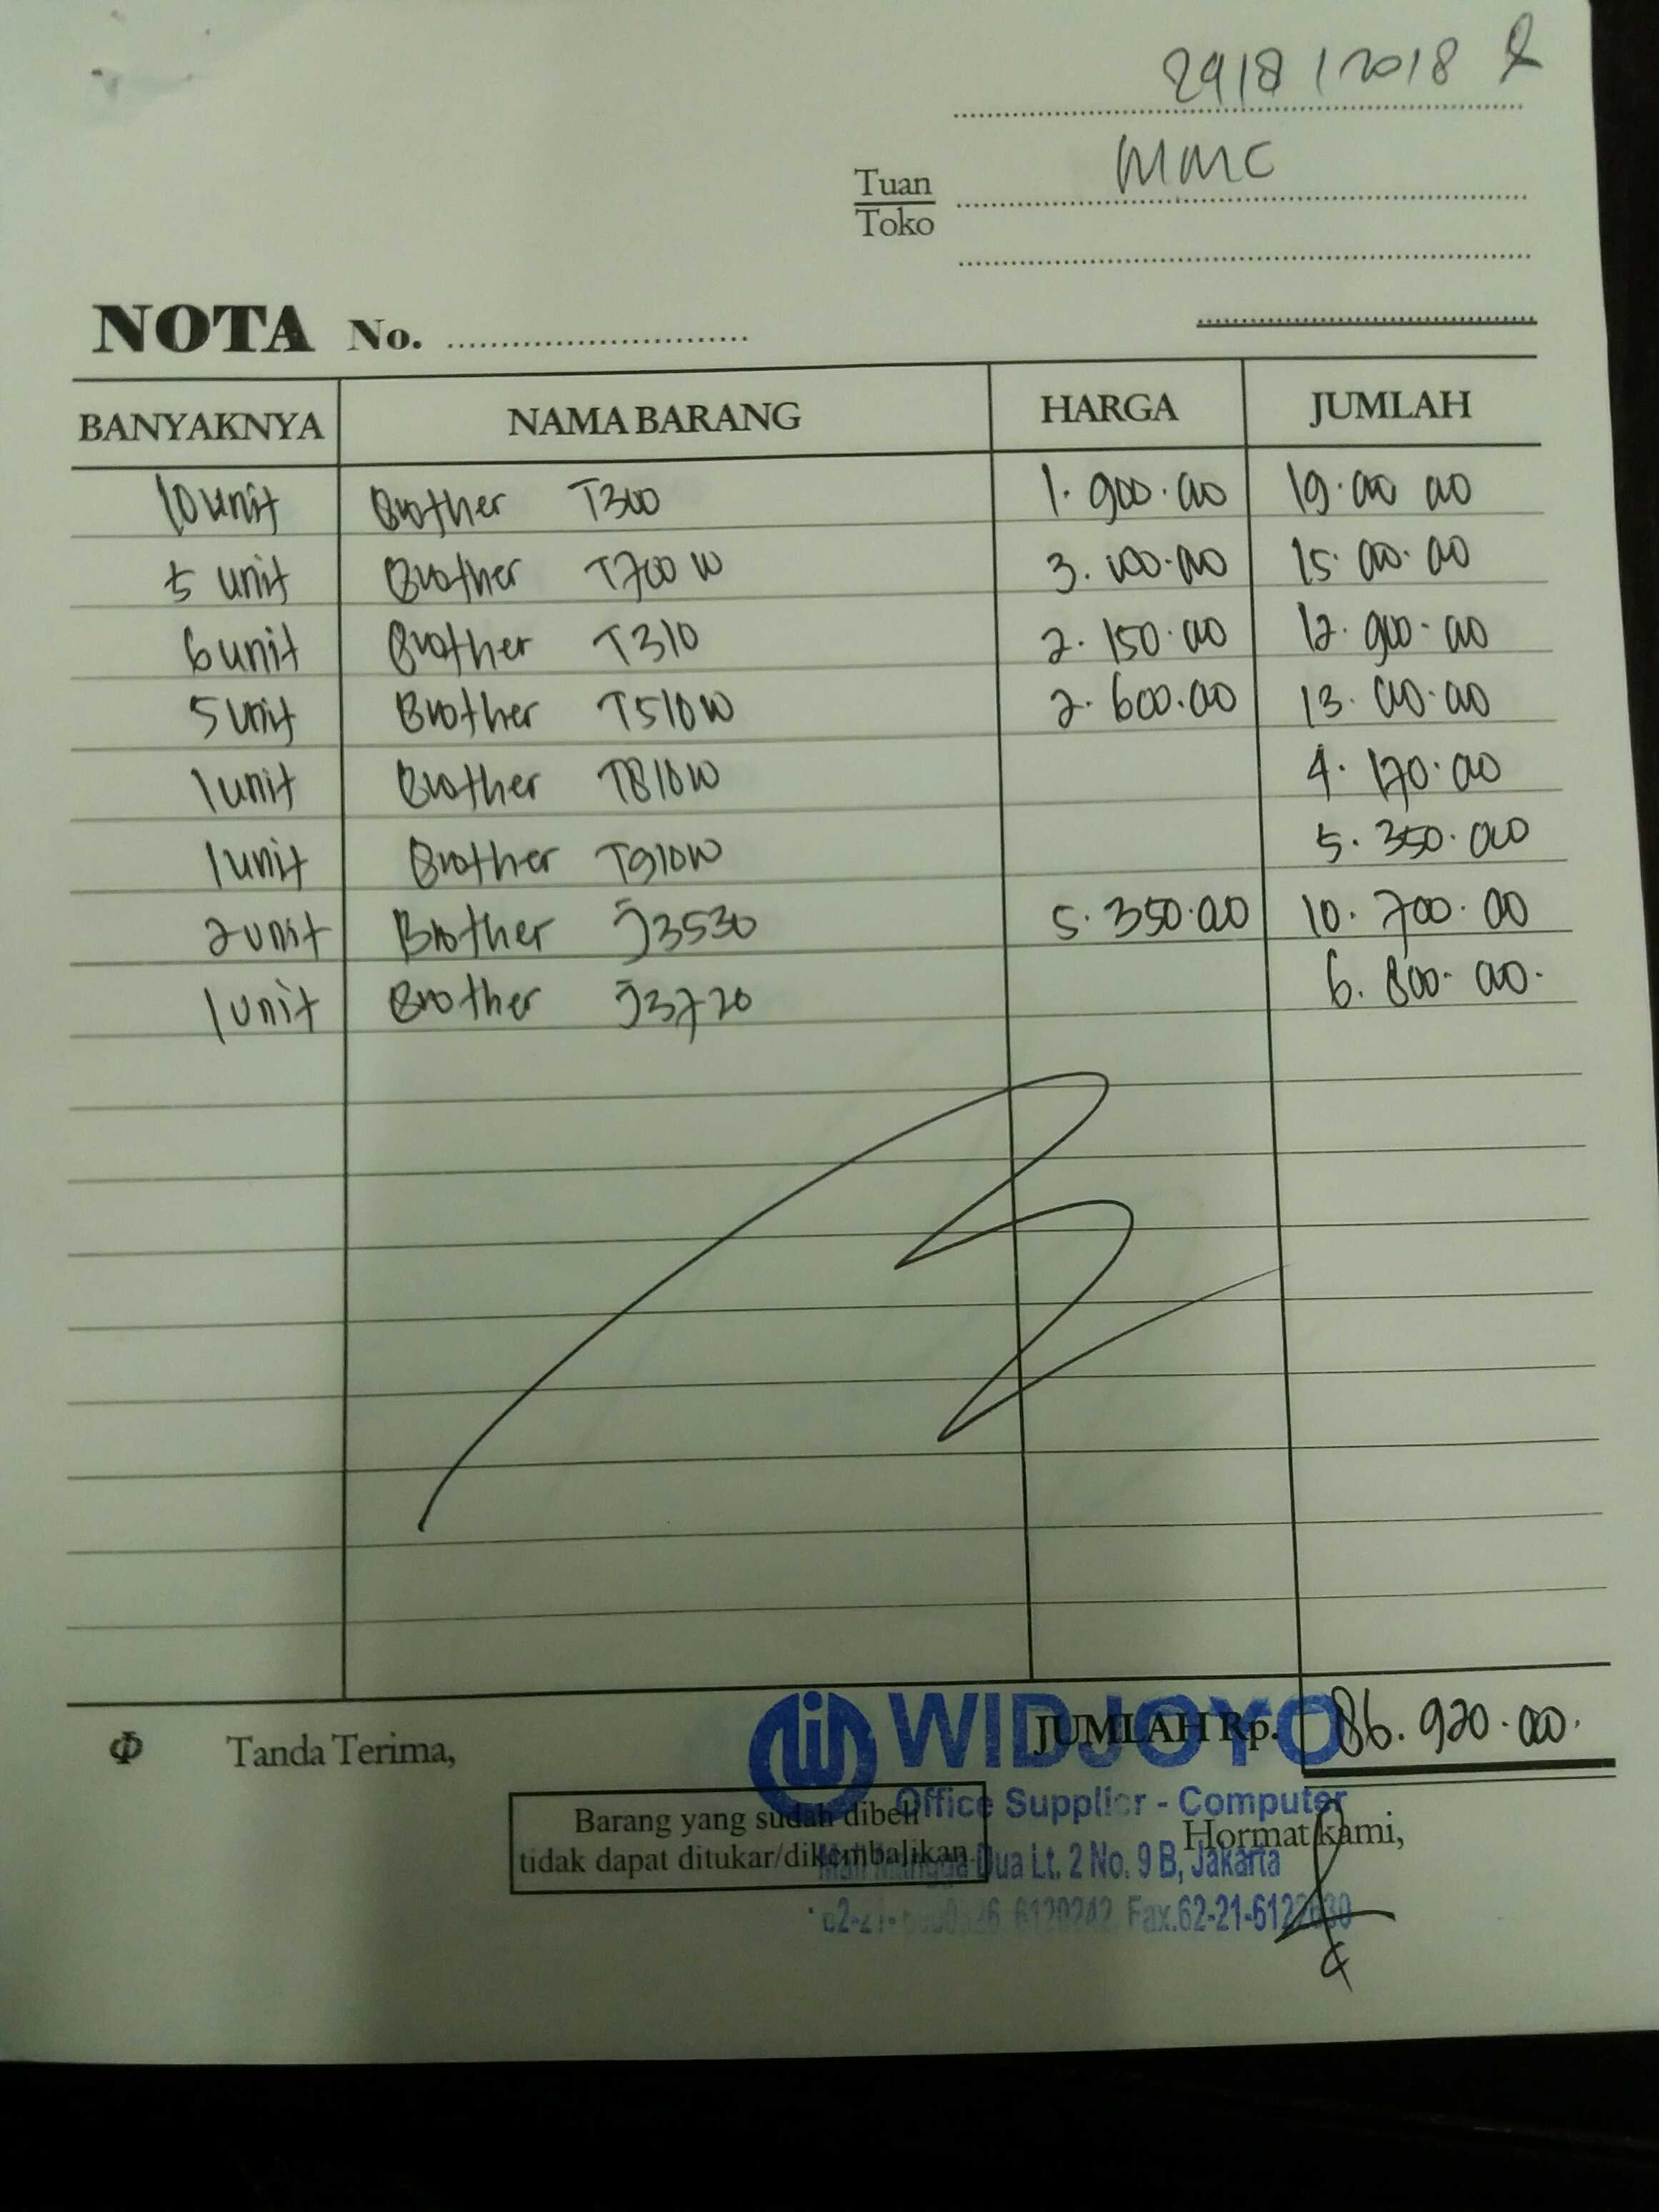 29/8/2018
MMC
Tuan
Toko
NOTA No.
BANYAKNYA NAMA BARANG HARGA JUMLAH
10 unit Brother T300 1.900.00 19.00 00
5 unit Brother T700 W 3.100.00 15.00.00
6 unit Brother T310 2.150.00 12.900.00
5 unit Brother T510W 2.600.00 13.00.00
1 unit Brother T810W 4.170.00
1 unit Brother T910W 5.350.00
2 unit Brother J3530 5.350.00 10.700.00
1 unit Brother J3720 6.800.00.
Tanda Terima, WIDJOYO JUMLAH Rp. 86.920.00.
Office Supplier - Computer
Barang yang sudah dibeli
tidak dapat ditukar/dikembalikan
Hormat kami,
Mall Mangga Dua Lt. 2 No. 9 B, Jakarta
6120242 Fax.62-21-6122630